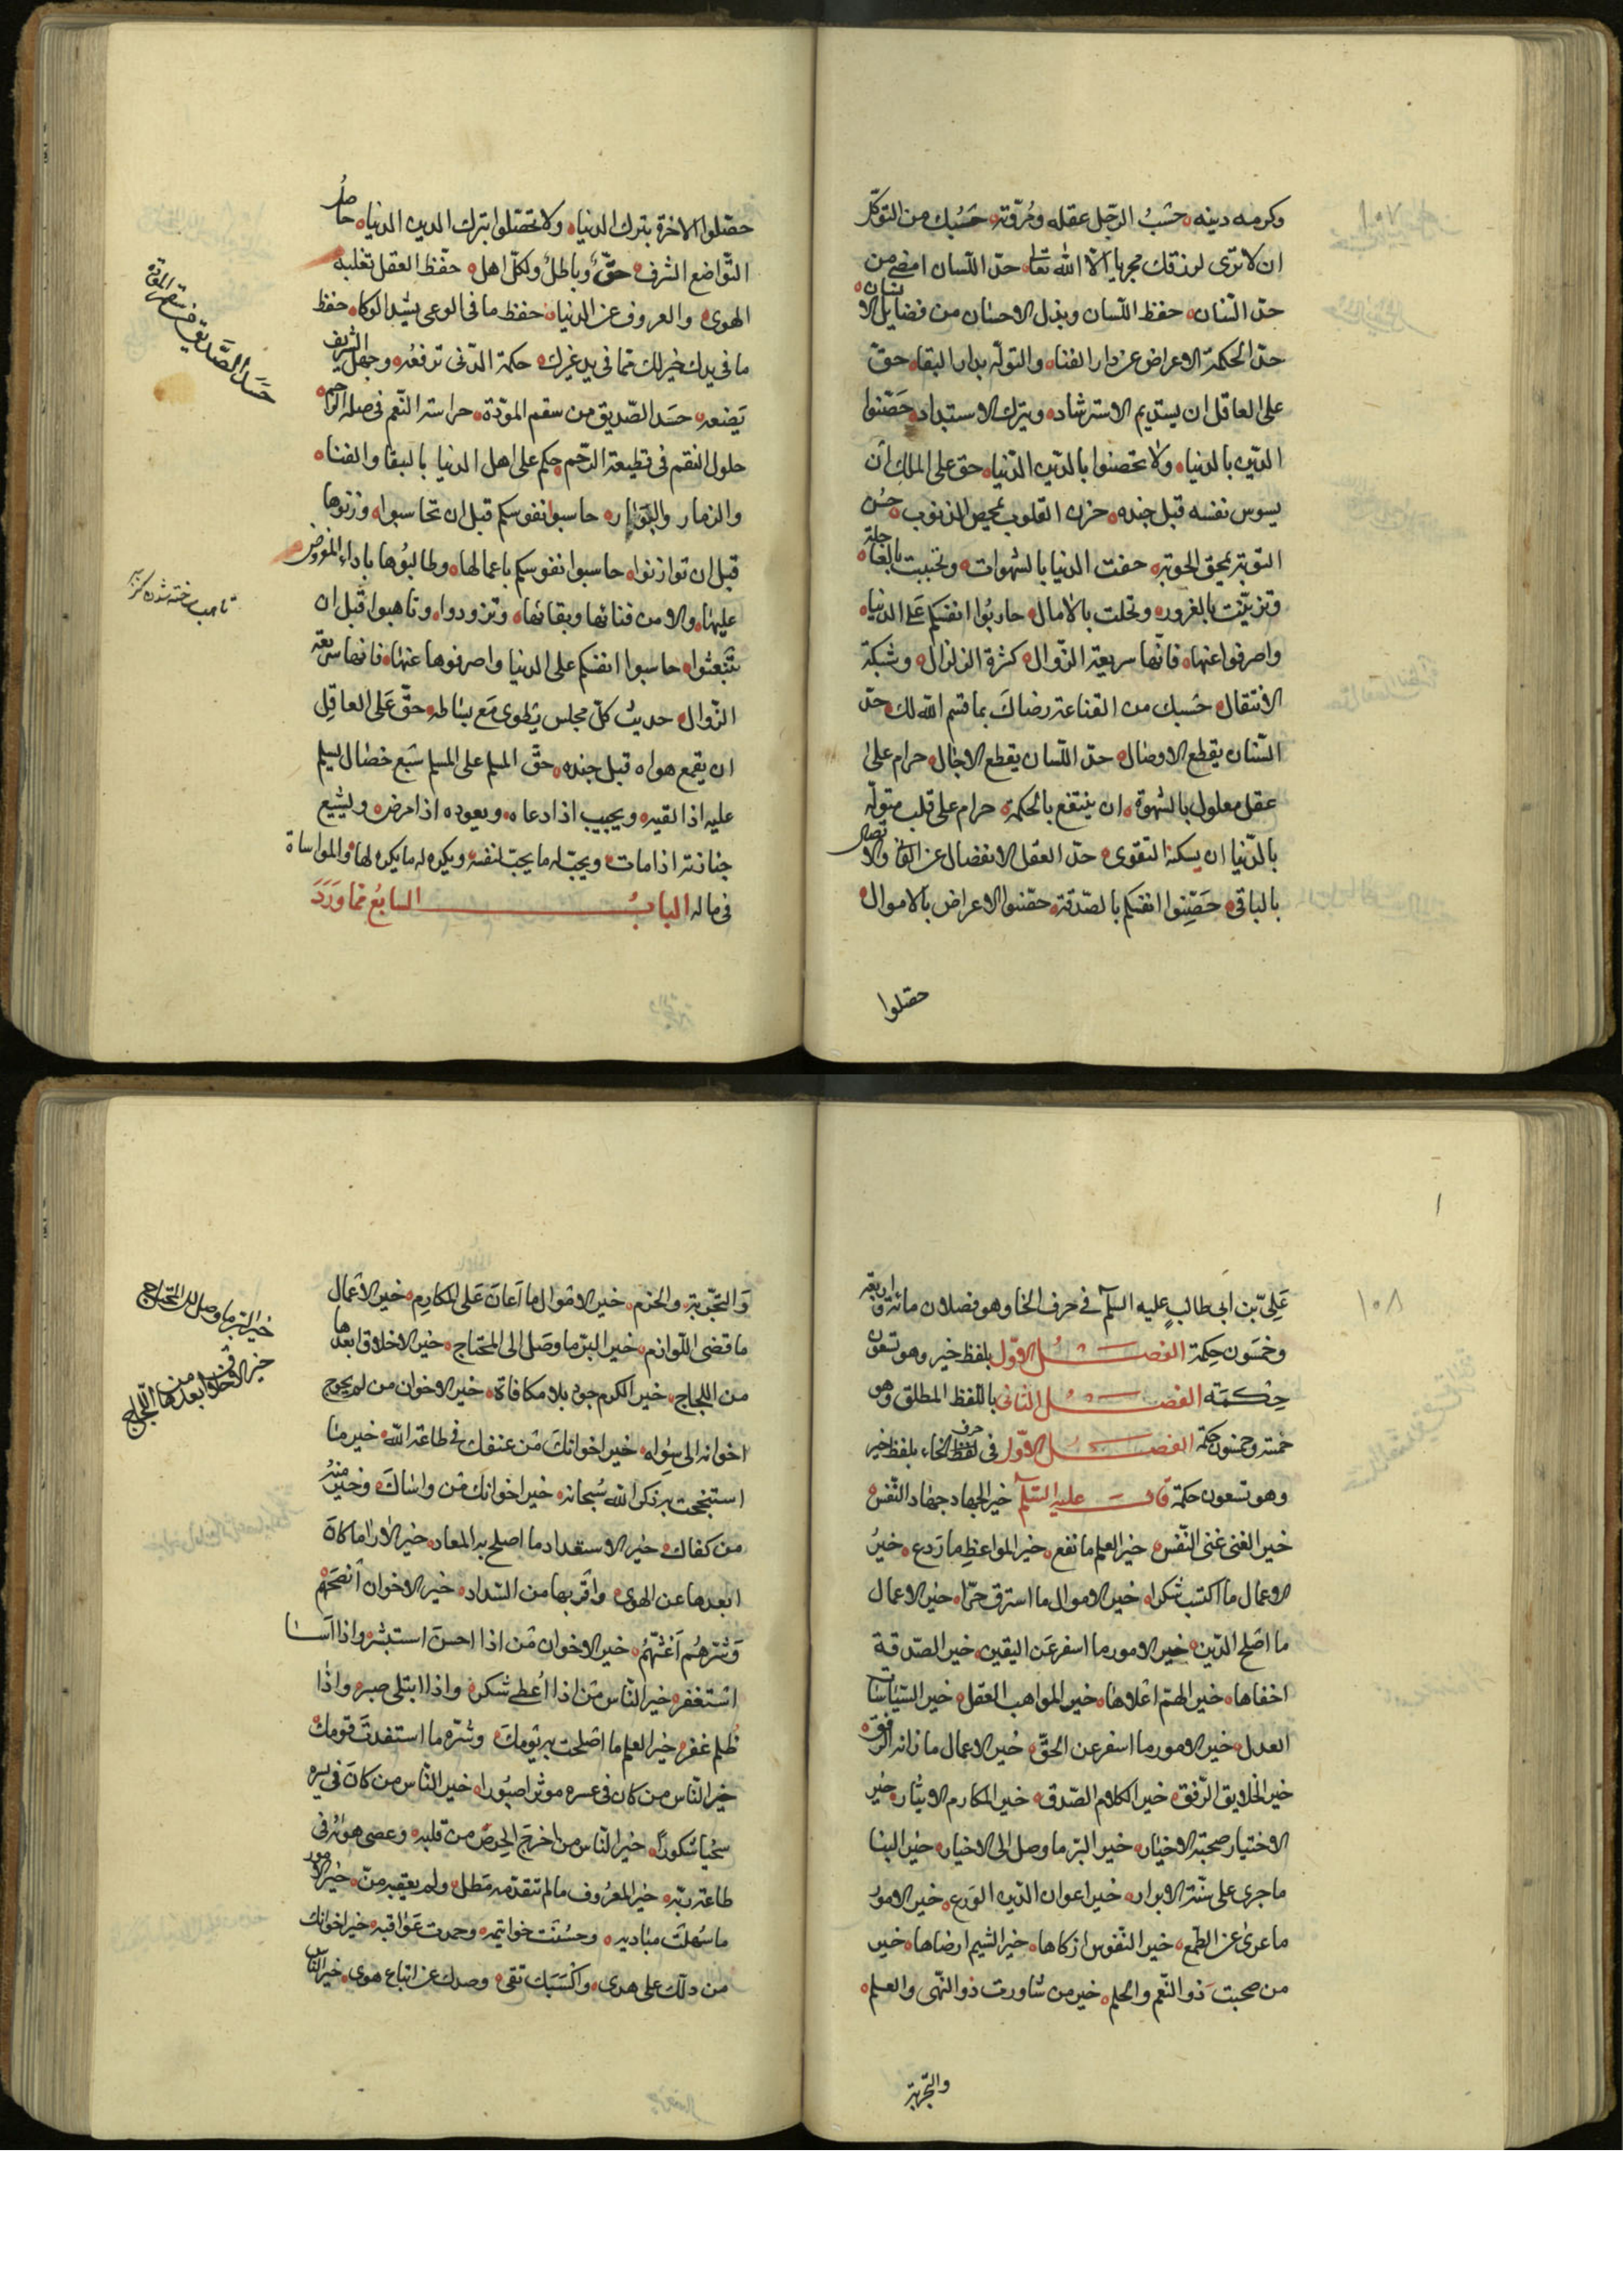 ١٠٧
وكرمه دينه حسب الرجل عقله ومروّته حسبك من التوكل
ان لا ترى لرزقك مجريا الّا الله تعالى حدّ اللّسان امضى من
حدّ السّنان حفظ اللّسان وبذل الاحسان من فضايل الانسان
حدّ الحكمة الاعراض عن دار الفناء والتولّه بدار البقاء حقّ
على العاقل ان يستديم الاسترشاد ويترك الاستبداد حَصّنوا
الدّين بالدنياه ولا تحصنوا بالدّين الدّنيا حق على الملك ان
يسوس نفسه قبل جنده حزن القلوب يمحيص الذنوب حُسن
التوبة يمحق الحوبة حفت الدنيا بالشهوات وتحببت بالعاجلة
وتزيّنت بالغرور وتحلت بالامال حاربُوا انفسكم عَلى الدنيا
واصرفوا عنها فانّها سريعة الزّوال كثرة الزلزال وشيكة
الانتقال حَسبك من القناعة رضاكَ بما قسم الله لك حدّ
السّنان يقطع الاوصال حدّ اللّسان يقطع الاجال حرام على
عقل معلول بالشهوة ان ينتفع بالحكمة حرام على قلب متولّه
بالدّنيا ان يسكنه التقوى حدّ العقل الانفصال عن الفانى والاتصال
بالباقى حَصّنوا انفسكم بالصّدقة حصّنوا الاعراض بالاموال
حصّلوا
حصّلوا الاخرة بترك الدنيا ولا تحصّلوا بترك الدين الدنيا حاصل
التّواضع الشرف حقّ وباطلٌ ولكلّ اهل حفظ العقل تغلبه
الهوى والعزوف عن الدنيا حفظ ما فى الوعى بشد الوكاء حفظ
ما فى يدك خير لك ممّا فى يد غيرك حكمة الدّنى ترفعُه وجهل الشريف
يَضعه حسَد الصّديق من سقم المودّة حراسة النّعم فى صلة الرّحم
حلول النقم فى قطيعة الرّحم حكم على اهل الدنيا بالبقاء والفناء
والزمار والبَوار حاسبوا نفوسكم قبل ان تحاسبوا وزنوها
قبل ان توازنوا حاسبوا نفوسكم باعمالها وطالبُوها باداء المفروض
عليها والامن فنائها وبقائها وتزودوا وتاهبوا قبل ان
تُبعثوا حاسبوا انفسكم على الدنيا واصرفوها عنها فانها سريعة
الزّوال حديث كلّ مجلس يُطوى مَع بساطه حقّ عَلى العاقِل
ان يقمع هواه قبل جنده حقّ المسلم على المسلم سَبع خصال يسلم
عليه اذا لقيه ويجيب اذا دعاه ويعوده اذا مرض ويشيع
جنازته اذا مات ويحبّ له ما يحبّ لنفسه ويكره له ما يكره لها والمواساة
فى ماله البابُ السابعُ ممّا وَرَدَ
حَسَد الصّديق من سقم المودّة
١٠٨
عَلِىّ بن ابى طالبٍ عليه السلم فى حرف الخا وهو فصلان مائة واربعة
وخمسون حِكمة الفصل الاوّل بلفظ خير وهو تسعون
حِكمَة الفصل الثانى باللّفظ المطلق وهو
خمسة وخمسون حكمة الفصل الاوّل فى حرف الخاء بلفظ خير
وهو تسعون حكمة قال عليه السّلم خير الجهاد جهاد النّفس
خير الغنى غنى النّفس خير العلم ما نفع خير المواعظِ ما رَدع خيرُ
الاعمال ما اكتسب شكرا خير الاموال ما استرق حرّا خير الاعمال
ما اصَلح الدّين خير الامور ما اسفر عَن اليقين خير الصّدقة
اخفاها خير الهمم اعْلاها خير المواهب العقل خير السّياسات
العدل خير الامور ما اسفر عن الحقّ خير الاعمال ما زانه الرّفق
خير الخلايق الرّفق خير الكلام الصّدق خير المكارم الايثار خير
الاختيار صحبة الاخيار خير البرّ ما وصل الى الاخيار خير البنا
ما جرى على سنّة الابرار خير اعوان الدّين الورع خير الامور
ما عرى عن الطّمع خير النّفوس ازكاها خير الشيم ارضاها خير
من صحبت ذو النّعم والحلم خير من شاورت ذو النّهى والعلم
والتّجربة
وَالتّجربة والحزم خير الامْوال ما اَعان عَلى المكارِم خير الاعْمال
ما قضى اللّوازم خير البرّ ما وصَل الى المحتاج خير الاخلاق ابعدها
من اللجاج خير الكرم جود بلا مكافاة خير الاخوان من لم يحوج
اخوانه الى سِواه خير اخوانكَ مَن عنفك فى طاعة الله خير ما
استنجحت به ذكر الله سُبحانه خير اخوانك مَن واساكَ وخير منه
من كفاك خير الاستعداد ما اصلح به المعاد خير الاراء ما كان
ابعدها عن الهوى واقربها من السّداد خير الاخوان اَنصَحهم
وَشرّهُم اَغشّهُم خير الاخوان مَن اذا احسنَ استبشر واذا اَسا
استغفر خير النّاس مَن اذا اُعطى شكر واذا ابتلى صبر واذا
ظُلم غفر خير العلم ما اصْلحت به يومكَ وشرّه ما استفدتَ قومك
خير النّاس من كان فى عسره موثرا صبُورا خير النّاس من كان فى يسره
سخيا شكورًا خير النّاس من اخرجَ الحِرصَ من قلبه وعصى هواهُ فى
طاعة ربّه خير المعرُوف ما لم تتقدّمه مَطل ولم يعقبه منّ خير الامور
ما سهلَت مباديه وحسُنت خواتيمه وحمدت عَواقبه خير اخوانك
من دلّك على هدى واكسَبَك تقى وصدك عن اتباع هوى خير النّاس
خير البرّ ما وصل الى المحتاج
خير الاخلاق ابعدها من اللّجاج